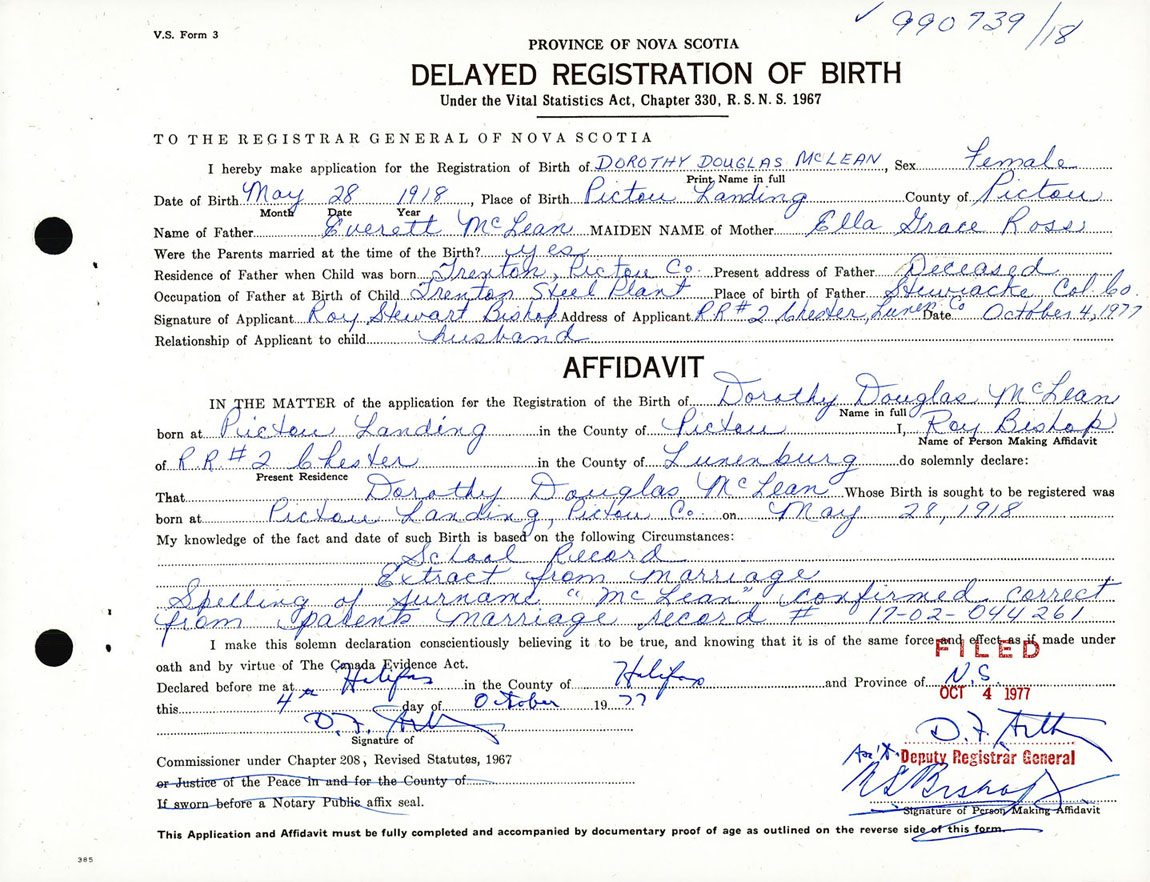 V.S. Form 3
✓ 990739/18
PROVINCE OF NOVA SCOTIA
DELAYED REGISTRATION OF BIRTH
Under the Vital Statistics Act, Chapter 330, R.S.N.S. 1967
TO THE REGISTRAR GENERAL OF NOVA SCOTIA
I hereby make application for the Registration of Birth of DOROTHY DOUGLAS McLEAN, Sex Female
Print Name in full
Date of Birth May 28 1918, Place of Birth Pictou Landing County of Pictou
Month Date Year
Name of Father Everett McLean MAIDEN NAME of Mother Ella Grace Ross
Were the Parents married at the time of the Birth? yes
Residence of Father when Child was born Trenton, Pictou Co. Present address of Father Deceased
Occupation of Father at Birth of Child Trenton Steel Plant Place of birth of Father Stewiacke Col. Co.
Signature of Applicant Roy Stewart Bishop Address of Applicant RR#2 Chester, Lunen Co Date October 4, 1977
Relationship of Applicant to child husband
AFFIDAVIT
IN THE MATTER of the application for the Registration of the Birth of Dorothy Douglas McLean
Name in full
born at Pictou Landing in the County of Pictou I, Roy Bishop
Name of Person Making Affidavit
of RR#2 Chester in the County of Lunenburg do solemnly declare:
Present Residence
That Dorothy Douglas McLean Whose Birth is sought to be registered was
born at Pictou Landing, Pictou Co. on May 28, 1918
My knowledge of the fact and date of such Birth is based on the following Circumstances:
School Record
Extract from marriage
Spelling of surname "McLean" confirmed correct
from parents marriage record # 17-02-044261
I make this solemn declaration conscientiously believing it to be true, and knowing that it is of the same force and effect as if made under
oath and by virtue of The Canada Evidence Act.
FILED
Declared before me at Halifax in the County of Halifax and Province of N.S.
OCT 4 1977
this 4th day of October 1977
Signature of
Commissioner under Chapter 208, Revised Statutes, 1967
or Justice of the Peace in and for the County of
If sworn before a Notary Public affix seal.
Deputy Registrar General
RS Bishop
Signature of Person Making Affidavit
This Application and Affidavit must be fully completed and accompanied by documentary proof of age as outlined on the reverse side of this form.
385